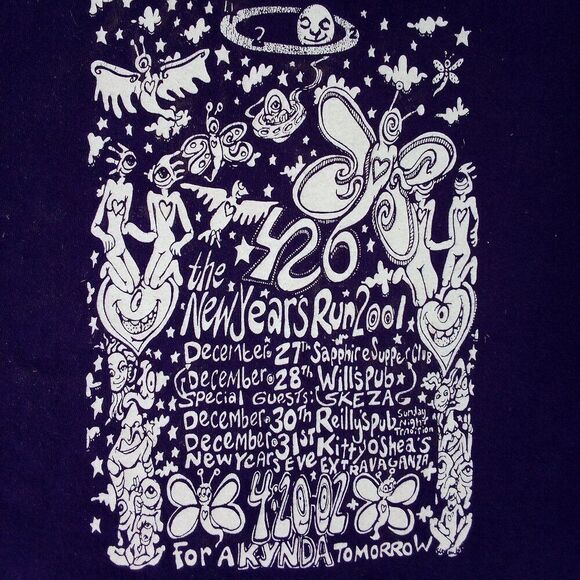 420
the
New Years Run 2001
December 27th Sapphire Supper Club
December 28th Will's Pub
Special Guests: SKEZAG
December 30th Reillyspub Sunday Night Tradition
December 31st Kitty O'Shea's
New Years Eve Extravaganza
4:20-02
For A KYNDA Tomorrow